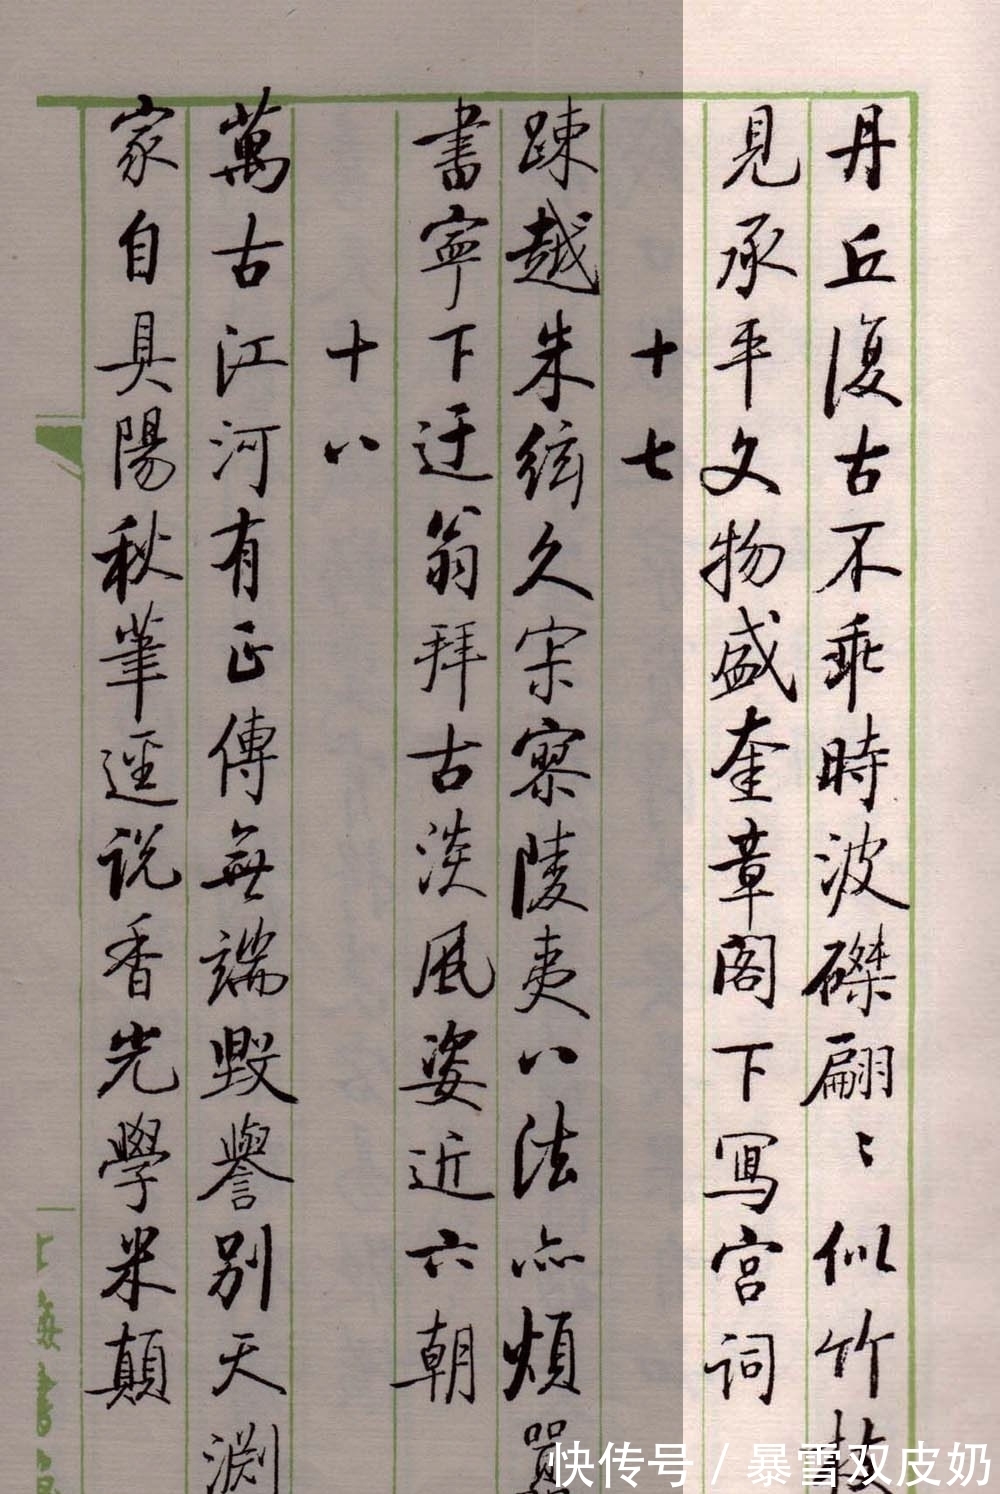 丹丘復古不乖時波磔翩〻似竹枝
見承平文物盛奎章閣下寫宮詞
十七
疎越朱絃久寂寥陵夷八法亦煩囂
書寧下迂翁拜古淡風姿近六朝
十八
萬古江河有正傳無端毀譽別天淵
家自具陽秋筆逕說香光學米顛
海書
快传号 / 暴雪双皮奶